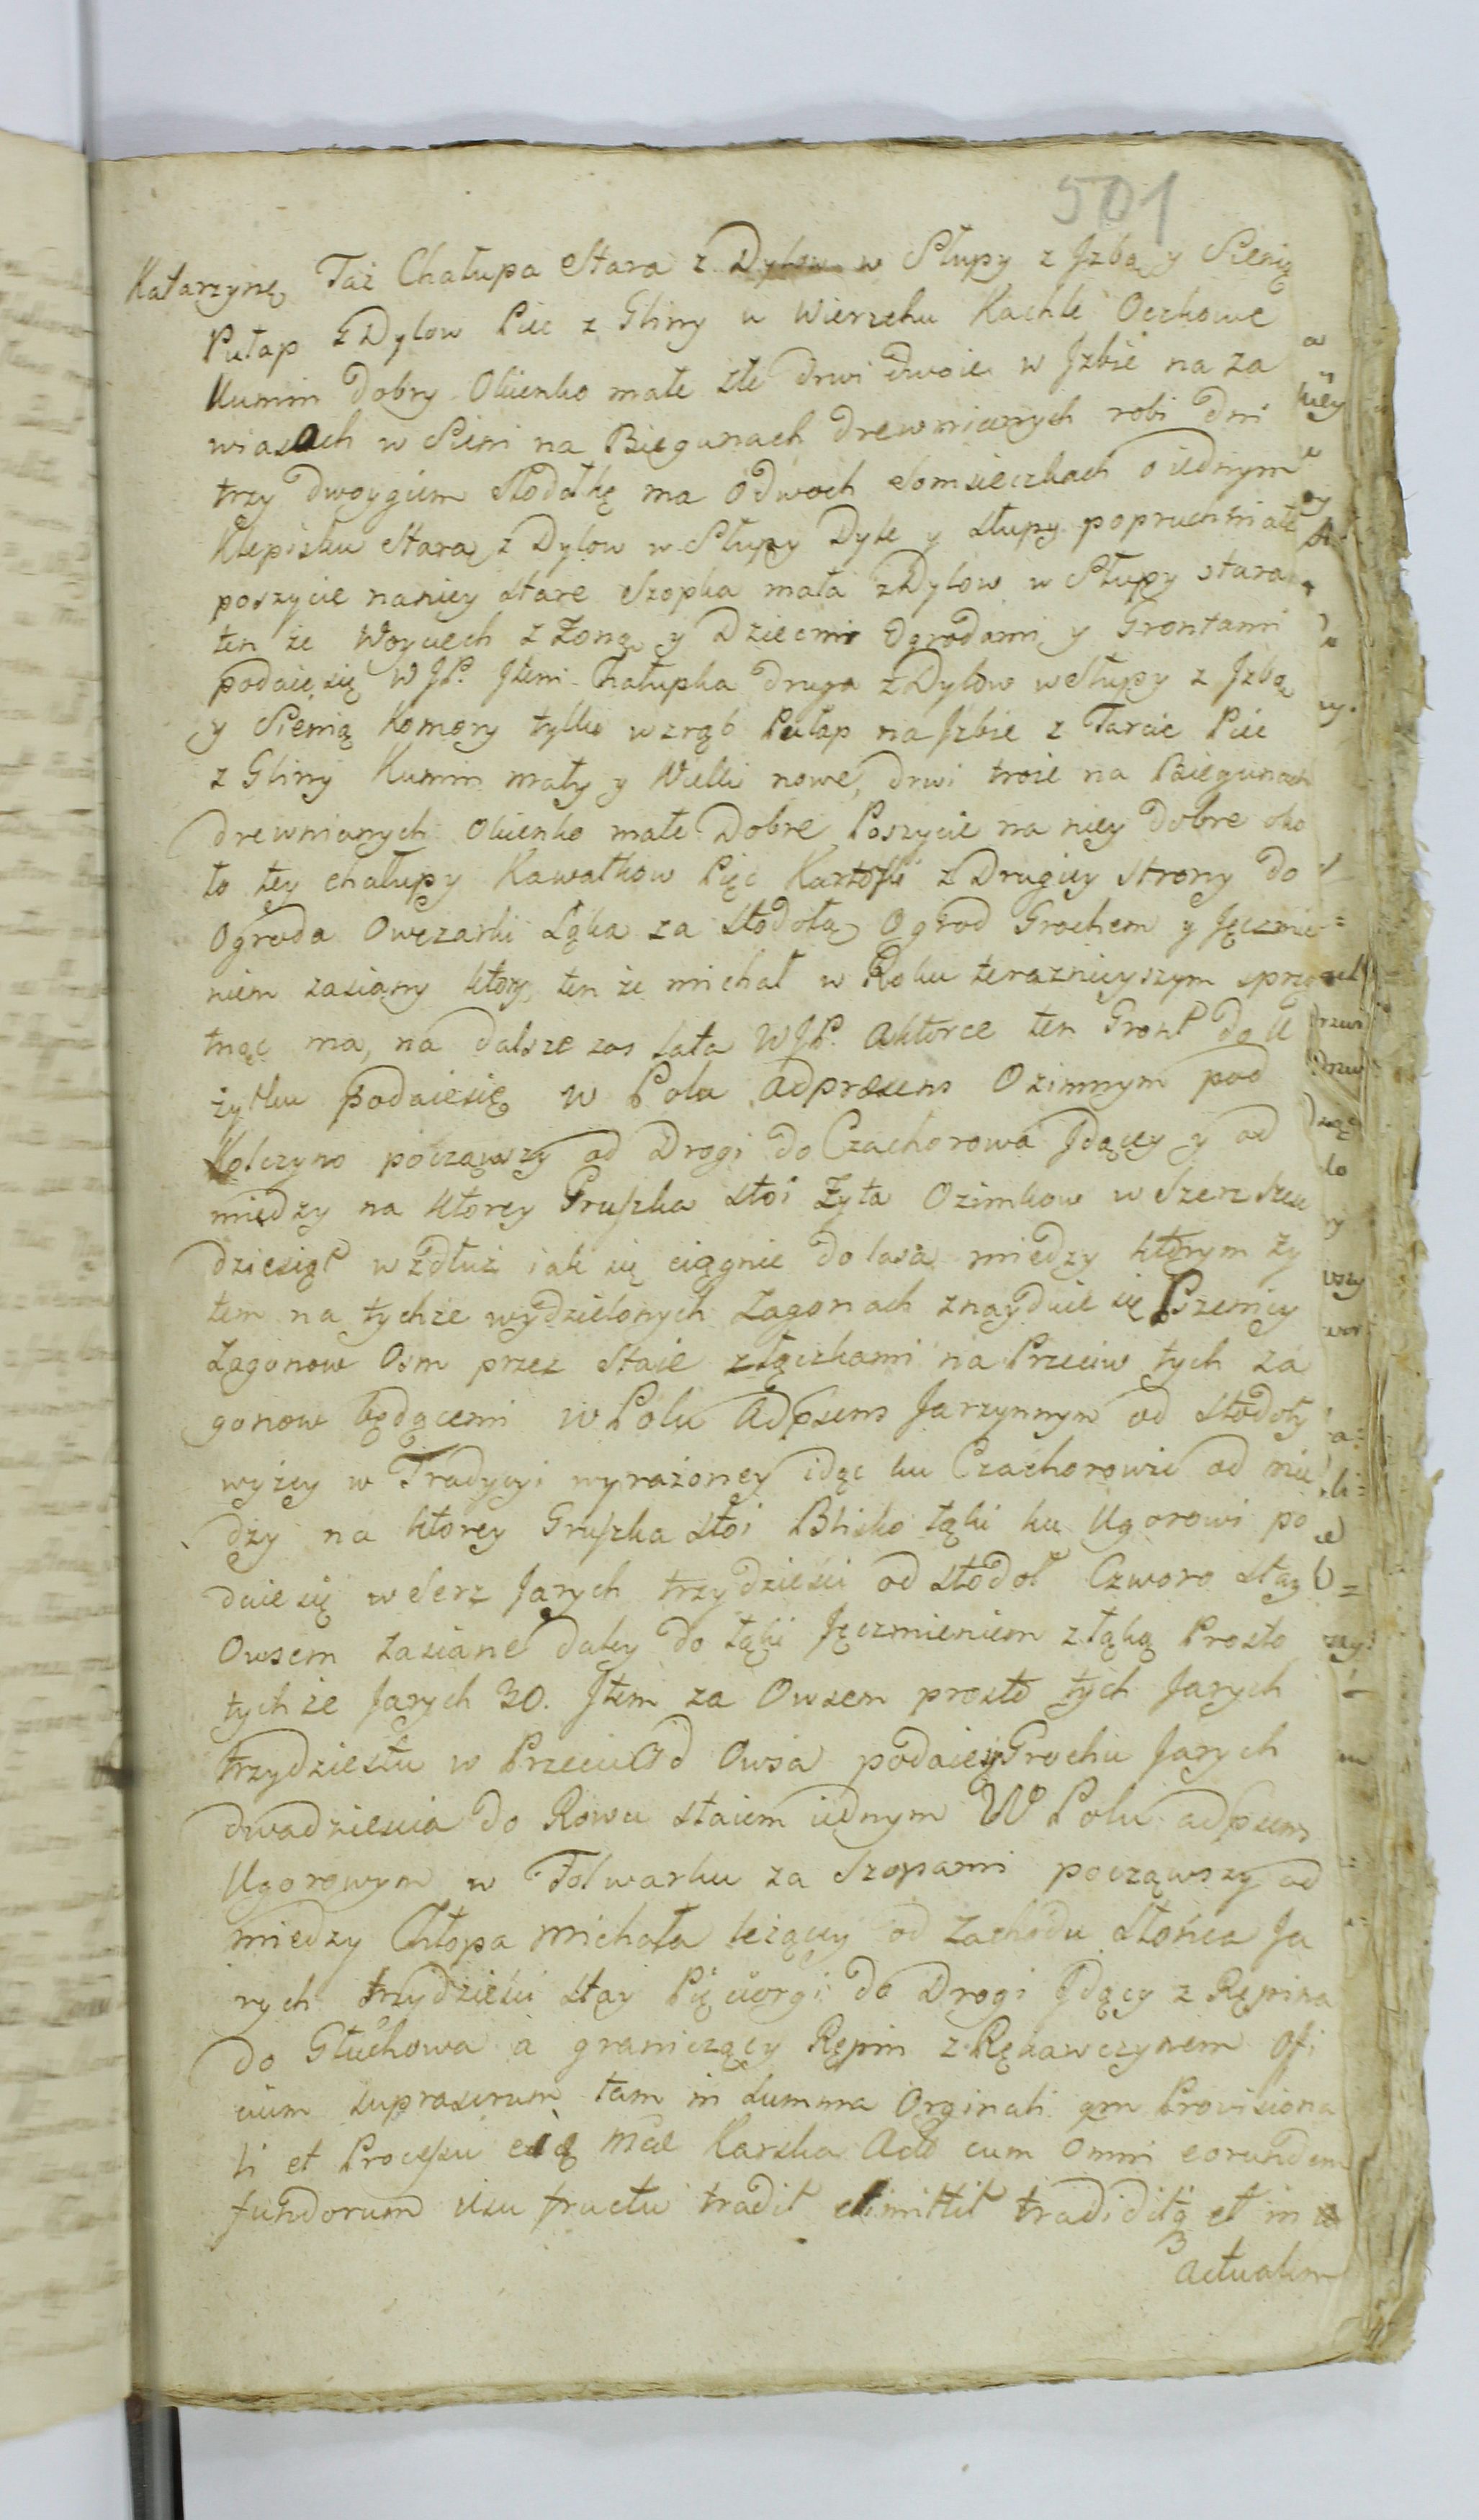 501
Katarzynę Taż Chałupa Stara z Dylow w Słupy z Jzbą y Sienią
Pułap z Dylow Piec z Gliny u Wierzchu Kachle Oczkowe
Kumin dobry Okienko małe złe drwi dwoie w Jzbie na za
wiasach w Sieni na Biegunach drewnianych robi dni
trzy dwoygiem Stodołkę ma o dwoch Somsieczkach o iednym
Klepisku Starą z Dylow w Słupy Dyle y Słupy popruchniałe
poszycie naniey stare Szopka mała z Dylow w Słupy stara
ten że Woyciech z Zoną y Dziecmi Ogrodami y Grontami
podaie się WJP. Jtem Chałupka druga z Dylow w Słupy z Jzbą
y Sienią Komory tylko wzrąb Pułap na Jzbie z Tarcic Piec
z Gliny Kumin mały y Wielki nowe, drwi troie na Biegunach
drewnianych Okienko małe Dobre Poszycie na niey dobre oko
ło tey chałupy Kawałkow Pięc Kartofli z Drugiey strony do
Ogroda Owczarki Łąka za Stodołą Ogrod Grochem y Jęczmie=
niem zasiany ktory ten że michał w Roku teraznieyszym sprzą
tnąc ma, na dalsze zas Lata WJP. Aktorce ten Gront do U
żytku podaie się w Polu adpræsens Ozimnym pod
Kolczyno począwszy od Drogi do Czachorowa Jdącey y od
miedzy na ktorey Gruszka stoi Zyta Ozimkow w Szerz szesc
dziesiąt wzdłuż iak się ciągnie do lasa między ktorym ży
tem na tychże wydzielonych Zagonach znayduie się Pszenicy
Zagonow Osm przez Staie z łączkami na Przeciw tych za
gonow będącemi w Polu adpsens Jarzynnym od stodoły
wyżey w Tradycyi wyrażoney idąc ku Czachorowu od mie
dzy na ktorey Gruszka stoi Blisko łąki ku Ugorowi po
daie się w Serz Jarych trzydzieści od stodoł Czworo stay
Owsem zasiane daley do łąki Jęczmieniem z łąką Prosto
tych że Jarych 30. Jtem za Owsem prosto tych Jarych
trzydziestu w Przeciw od Owsa podaie się Grochu Jarych
dwadziescia do Rowu staiem iednym W Polu adpsens
Ugorowym w Folwarku za Szopami począwszy od
miedzy Chłopa Michała leżącey od Zachodu Słońca Ja
rych trzydzieści stay Pięciorgi do Drogi Jdący z Rępina
do Głuchowa a graniczący Rępin z Rękawczynem Ofi
cium suprascrum tam in Summa Orginali qm Provisiona
li et Processu Mae Karska Actō cum Omni eorundem
fundorum usu fructu tradit tradiditq et in
Actualem